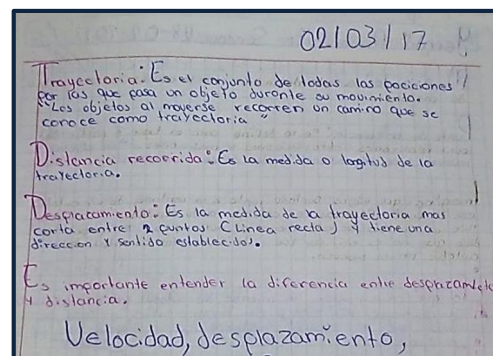 02/03/17
Trayectoria: Es el conjunto de todas las pociciones
por las que pasa un objeto durante su movimiento.
"Los objetos al moverse recorren un camino que se
conoce como trayectoria"
Distancia recorrida: Es la medida o logitud de la
trayectoria.
Desplazamiento: Es la medida de la trayectoria mas
corta entre 2 puntos (Linea recta) y tiene una
direccion y sentido establecido.
Es importante entender la diferencia entre desplazamiento
y distancia.
Velocidad, desplazamiento,